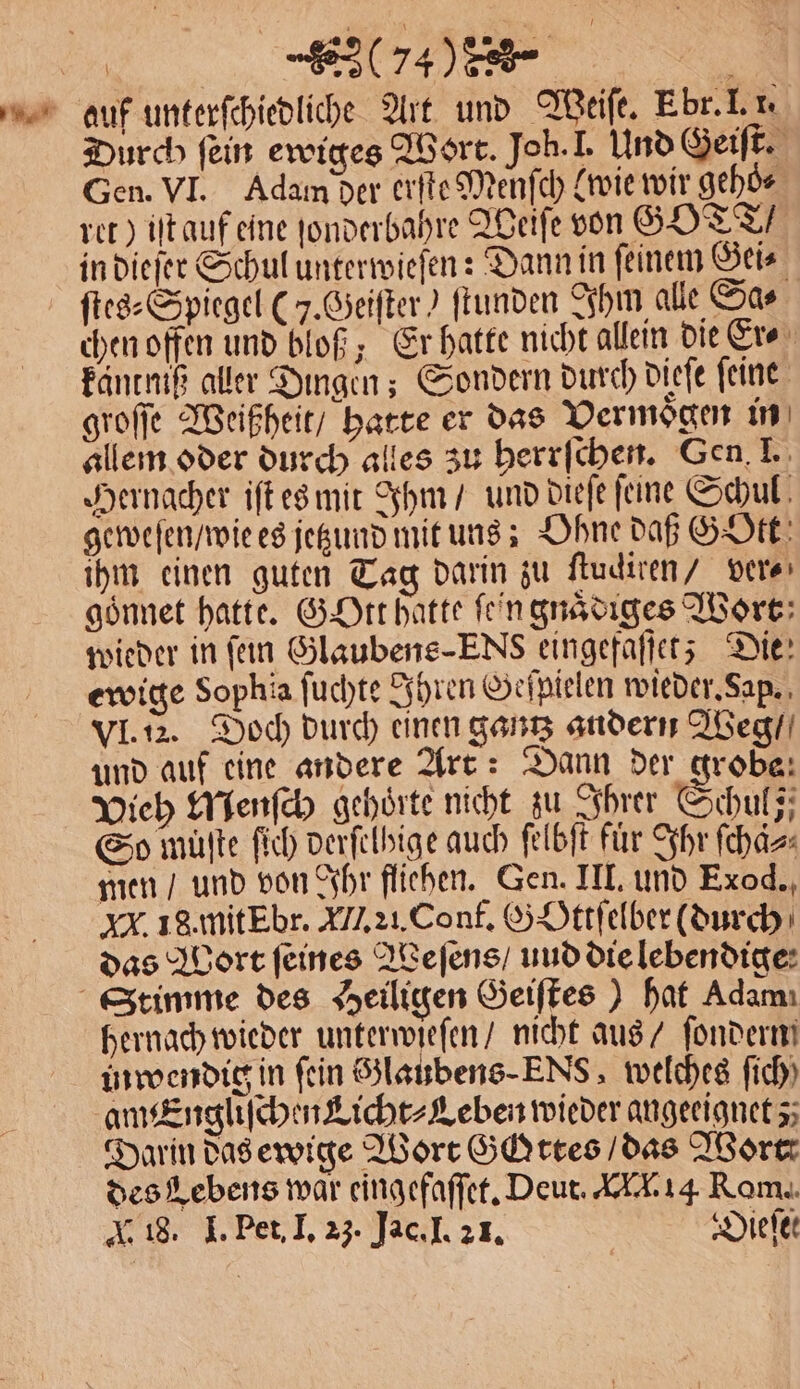 (74)
auf unterſchiedliche Art und Weiſe. Ebr. I. 1.
Durch ſein ewiges Wort. Joh. I. Und Geiſt.
Gen. VI. Adam der erſte Menſch (wie wir gehoͤ⸗
ret) iſt auf eine ſonderbahre Weiſe von GOTT/
in dieſer Schul unterwieſen: Dann in ſeinem Gei⸗
ſtes⸗Spiegel (7. Geiſter) ſtunden Ihm alle Sa⸗
chen offen und bloß; Er hatte nicht allein die Er⸗
kaͤntniß aller Dingen; Sondern durch dieſe ſeine
groſſe Weißheit/ hatte er das Vermoͤgen in
allem oder durch alles zu herrſchen. Gen. I.
Hernacher iſt es mit Ihm / und dieſe ſeine Schul
geweſen/wie es jetzund mit uns; Ohne daß GOtt
ihm einen guten Tag darin zu ſtudiren / ver⸗
goͤnnet hatte. GOtt hatte ſein gnaͤdiges Wort
wieder in ſein Glaubens-ENS eingefaſſet; Die
ewige Sophia ſuchte Ihren Geſpielen wieder. Sap.
VI. 12. Doch durch einen gantz andern Weg/
und auf eine andere Art: Dann der grobe
Vieh Menſch gehoͤrte nicht zu Ihrer Schul;
So muͤſte ſich derſelbige auch ſelbſt fuͤr Ihr ſchaͤ⸗
men / und von Ihr fliehen. Gen. III. und Exod.
XX. 18. mit Ebr. XII. 21. Conf. GOtt ſelber (durch
das Wort ſeines Weſens/ uud die lebendige
Stimme des Heiligen Geiſtes ) hat Adam
hernach wieder unterwieſen / nicht aus / ſondern
inwendig in ſein Glaubens-ENS, welches ſich
am Engliſchen Licht⸗Leben wieder angeeignet;
Darin das ewige Wort GOttes / das Wort
des Lebens war eingefaſſet. Deut. XXX. 14 Rom.
X. 18. I. Pet. I. 23. Jac. I. 21. Dieſer